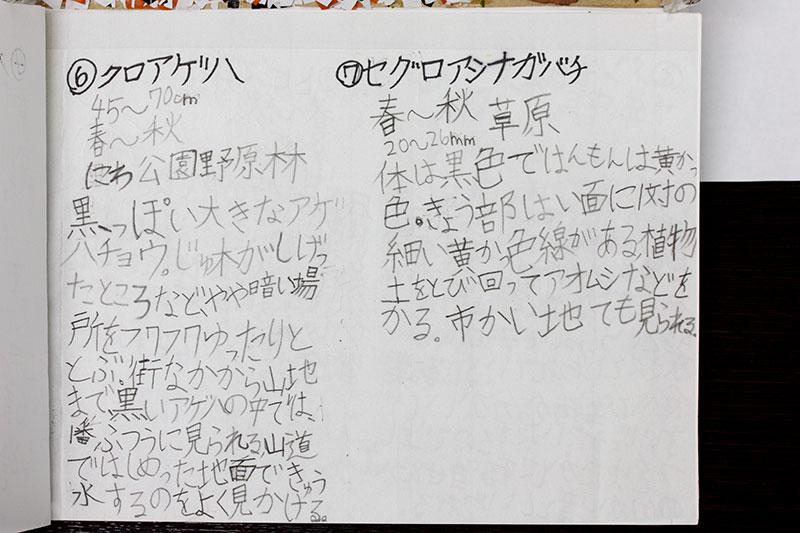 ⑥クロアゲハ
45〜70cm
春〜秋
にわ 公園野原林
黒っぽい大きなアゲ
ハチョウ。じゅ木がしげっ
たところなど、やや暗い場
所をフワフワゆったりと
とぶ。街なかから山地
まで、黒いアゲハの中では、
番ふつうに見られる。山道
ではしめった地面できゅう
水するのをよく見かける。
⑦セグロアシナガバチ
春〜秋 草原
20〜26mm
体は黒色ではんもんは黄かっ
色。きょう部はい面に1対の
細い黄かっ色線がある。植物
土をとび回ってアオムシなどを
かる。市かい地でも見られる。